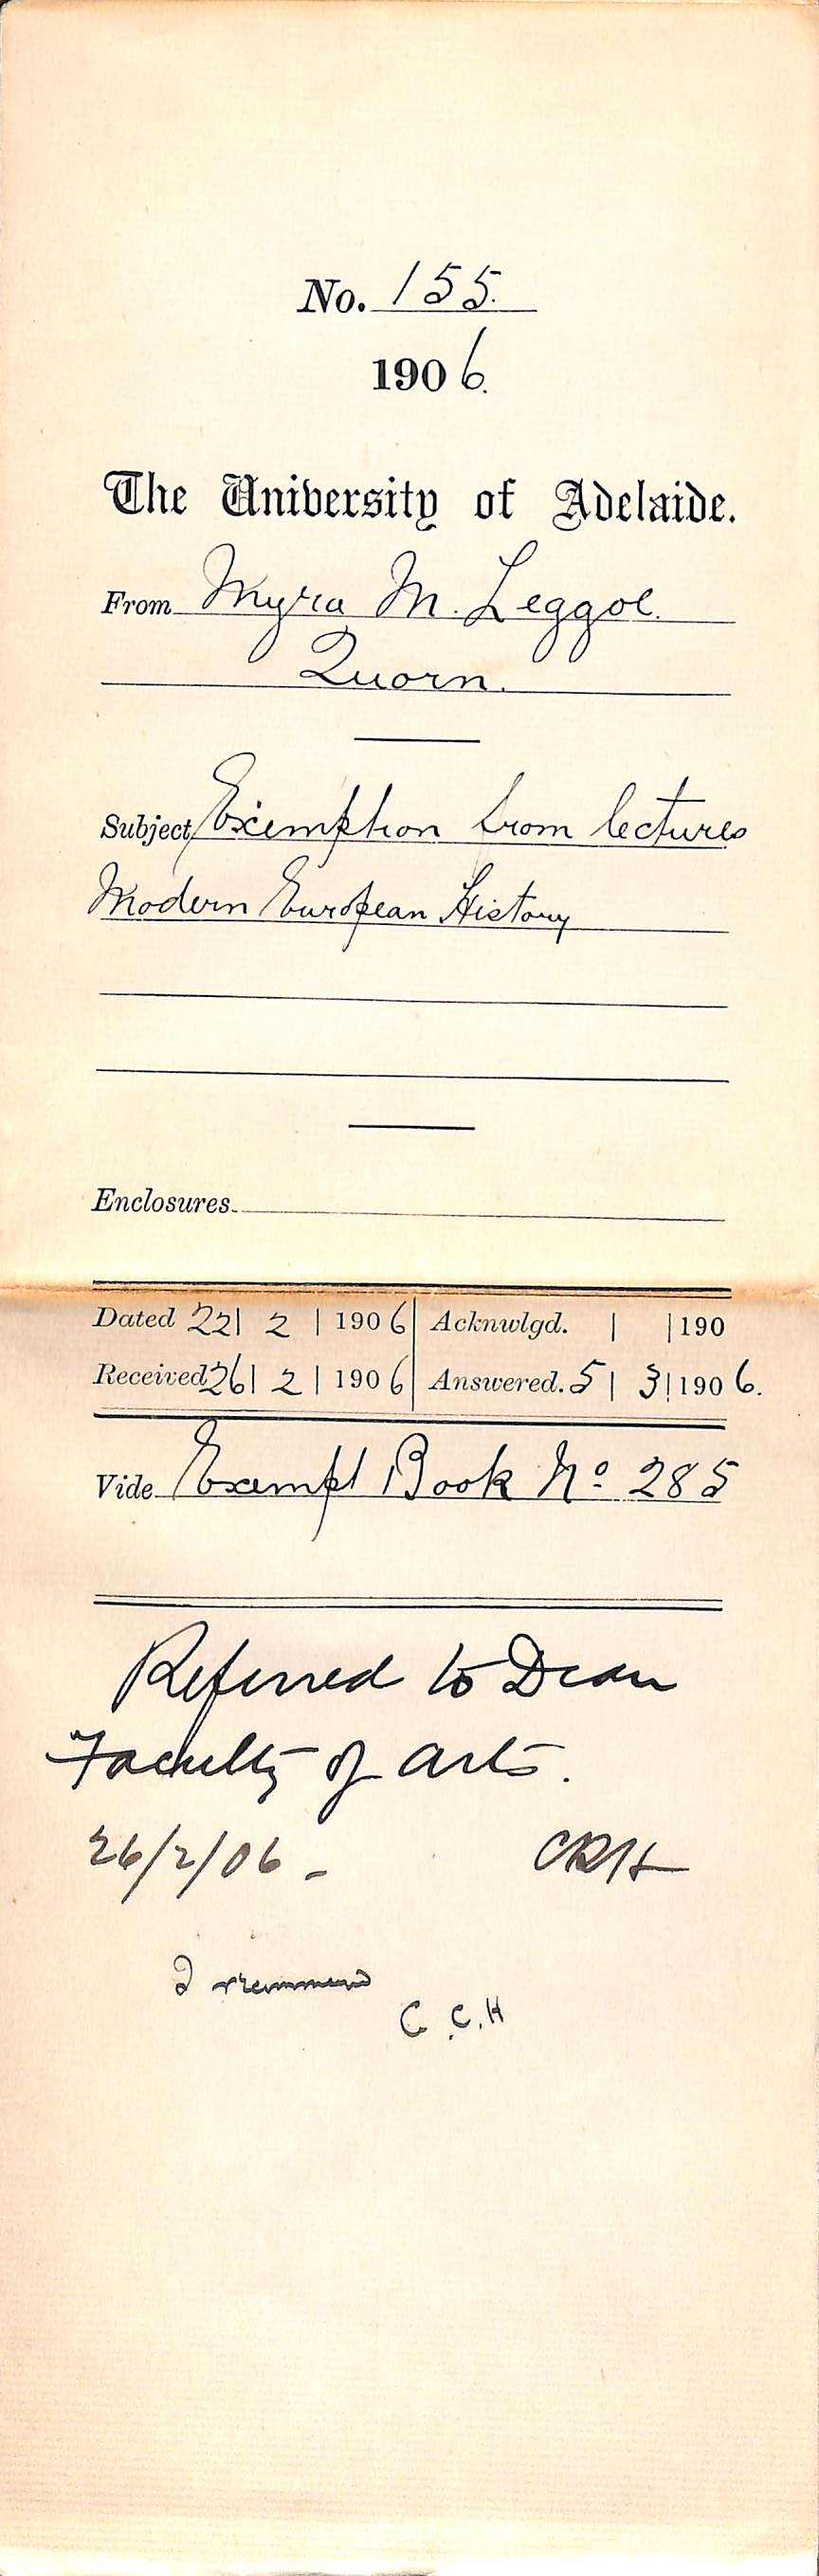 No. 155.
1906.
The University of Adelaide.
From Myra M. Leggoe.
Quorn.
Subject Exemption from lectures
Modern European History
Enclosures
Dated 22 | 2 | 1906 | Acknwlgd. | | 190
Received 26 | 2 | 1906 | Answered. 5 | 3 | 1906.
Vide Exempt Book No 285
Referred to Dean
Faculty of Arts.
26/2/06 - CRH
I recommend
C.C.H